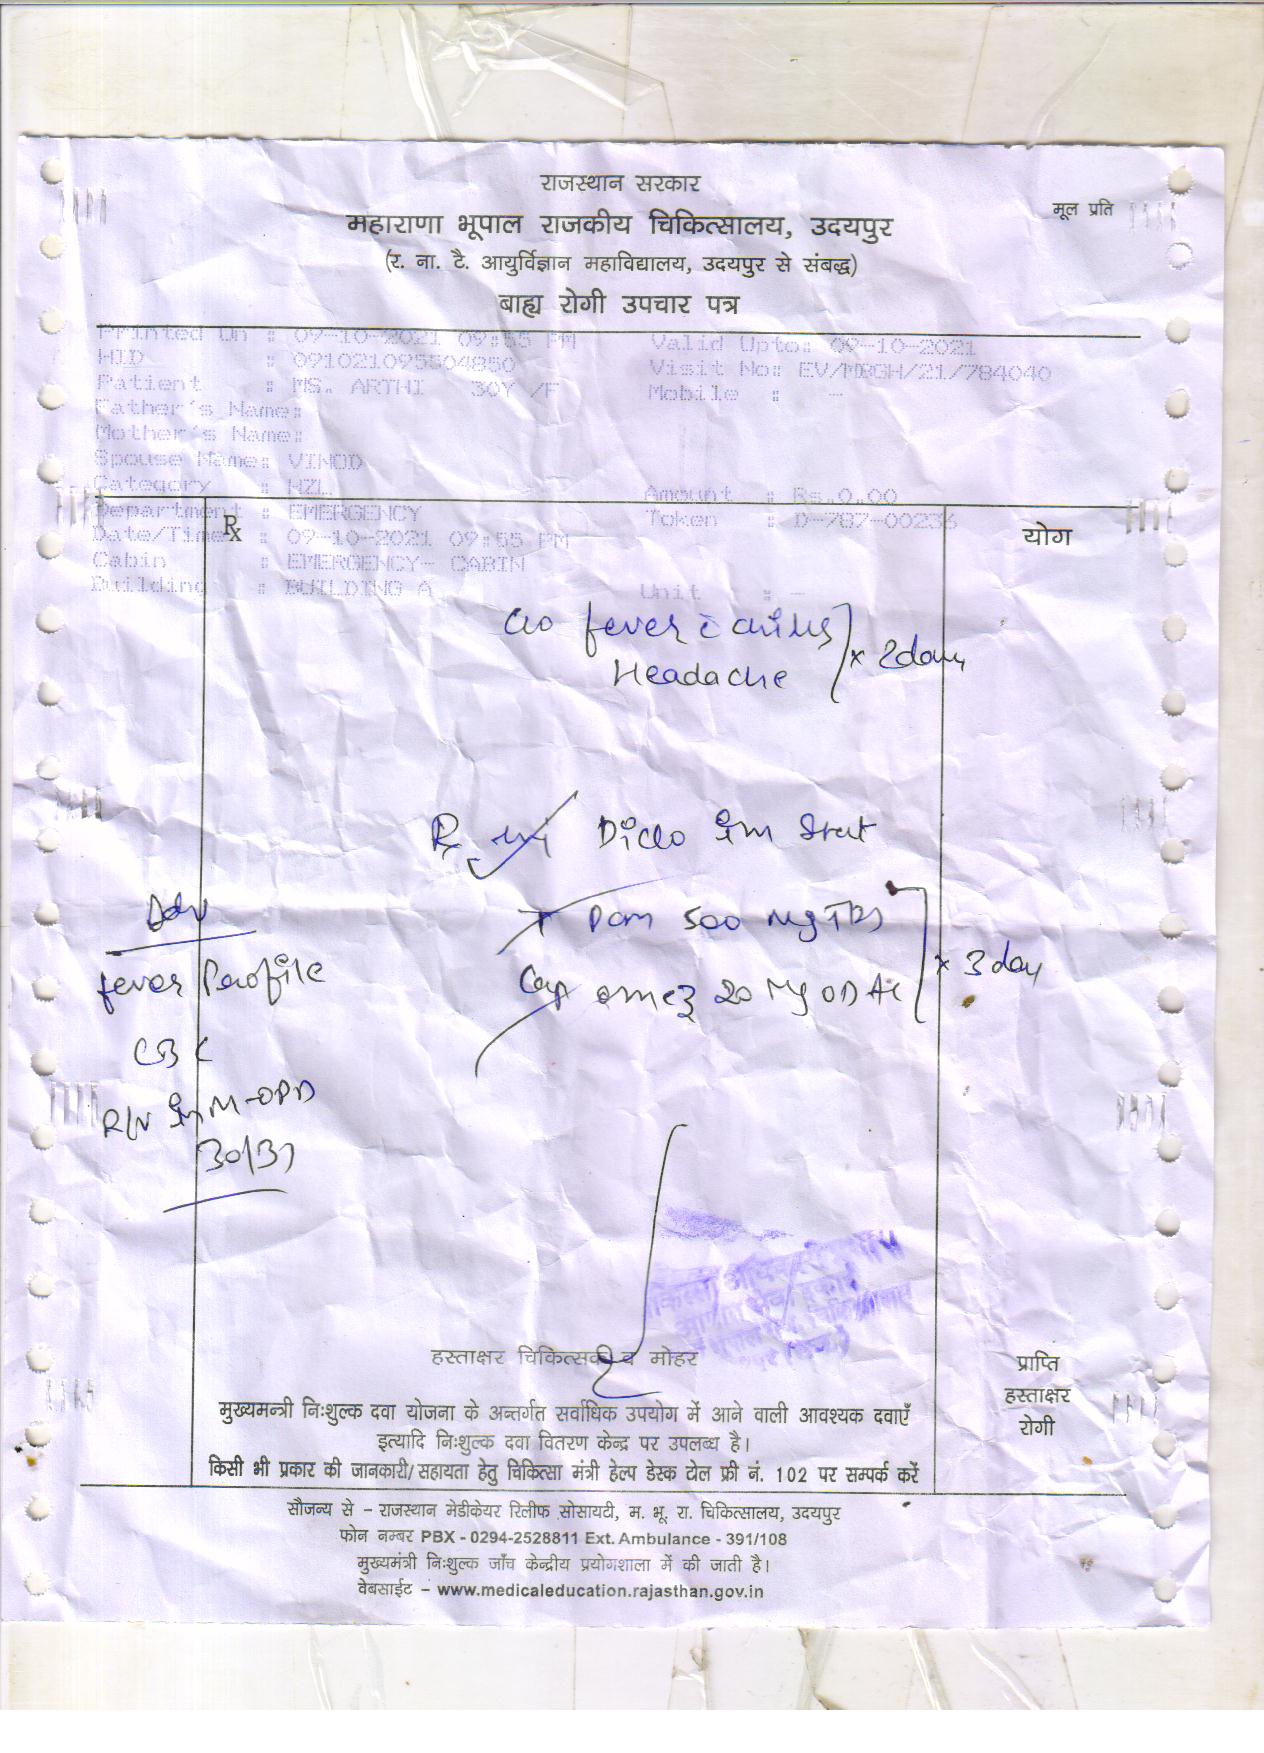 राजस्थान सरकार
मूल प्रति
महाराणा भूपाल राजकीय चिकित्सालय, उदयपुर
(र. ना. टै. आयुर्विज्ञान महाविद्यालय, उदयपुर से संबद्ध)
बाह्य रोगी उपचार पत्र
Printed On : 09-10-2021 09:55 PM Valid Upto: 09-10-2021
HID : 091021095504850 Visit No: EV/MBGH/21/784040
Patient : MS. ARTHI 30Y /F Mobile : -
Father's Name:
Mother's Name:
Spouse Name: VINOD
Category : HZL Amount : Rs.0.00
Department : EMERGENCY Token : D-787-00236
Date/Time : 09-10-2021 09:55 PM
Cabin : EMERGENCY- CABIN
Building : BUILDING A Unit : -
Rx योग
C/o fever c chills
Headache x 2 days
Rx Inj Diclo Im Stat
Adv
T Pcm 500 mg TDS
fever Profile
x 3 day
Cap Omez 20 mg OD AC
CBC
R/V In M-OPD
30/31
हस्ताक्षर चिकित्सक व मोहर
प्राप्ति
हस्ताक्षर
रोगी
मुख्यमन्त्री निःशुल्क दवा योजना के अन्तर्गत सर्वाधिक उपयोग में आने वाली आवश्यक दवाएँ
इत्यादि निःशुल्क दवा वितरण केन्द्र पर उपलब्ध है।
किसी भी प्रकार की जानकारी/सहायता हेतु चिकित्सा मंत्री हेल्प डेस्क टोल फ्री नं. 102 पर सम्पर्क करें
सौजन्य से – राजस्थान मेडीकेयर रिलीफ सोसायटी, म. भू. रा. चिकित्सालय, उदयपुर
फोन नम्बर PBX - 0294-2528811 Ext. Ambulance - 391/108
मुख्यमंत्री निःशुल्क जाँच केन्द्रीय प्रयोगशाला में की जाती है।
वेबसाईट – www.medicaleducation.rajasthan.gov.in